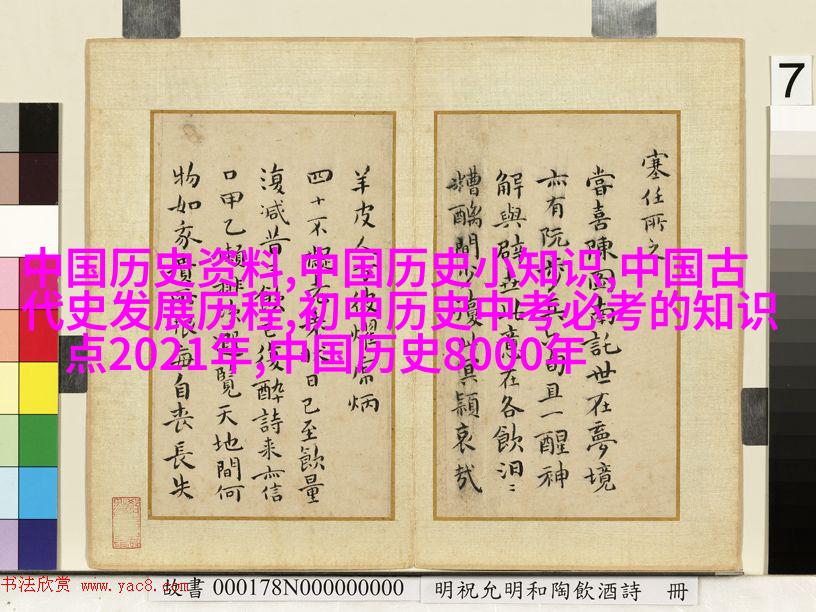 塞任所之
當喜陳圖南託世在夢境
亦有阮
且一醒神
解與辟
意在各飲汨〻
糟醨間
真穎哀哉
羊皮
彼燿
炳
四十不
日已至飲量
復減昔
後醉詩来亦信
口甲乙
覽天地間何
物如
自丧長失
7
中国历史资料,中国历史小知识,中国古
代史发展历程,初中历史中考必考的知识
点2021年,中国历史8000年
书法欣赏 www.yac8.com
故書 000178N000000000
明祝允明和陶飲酒詩 冊